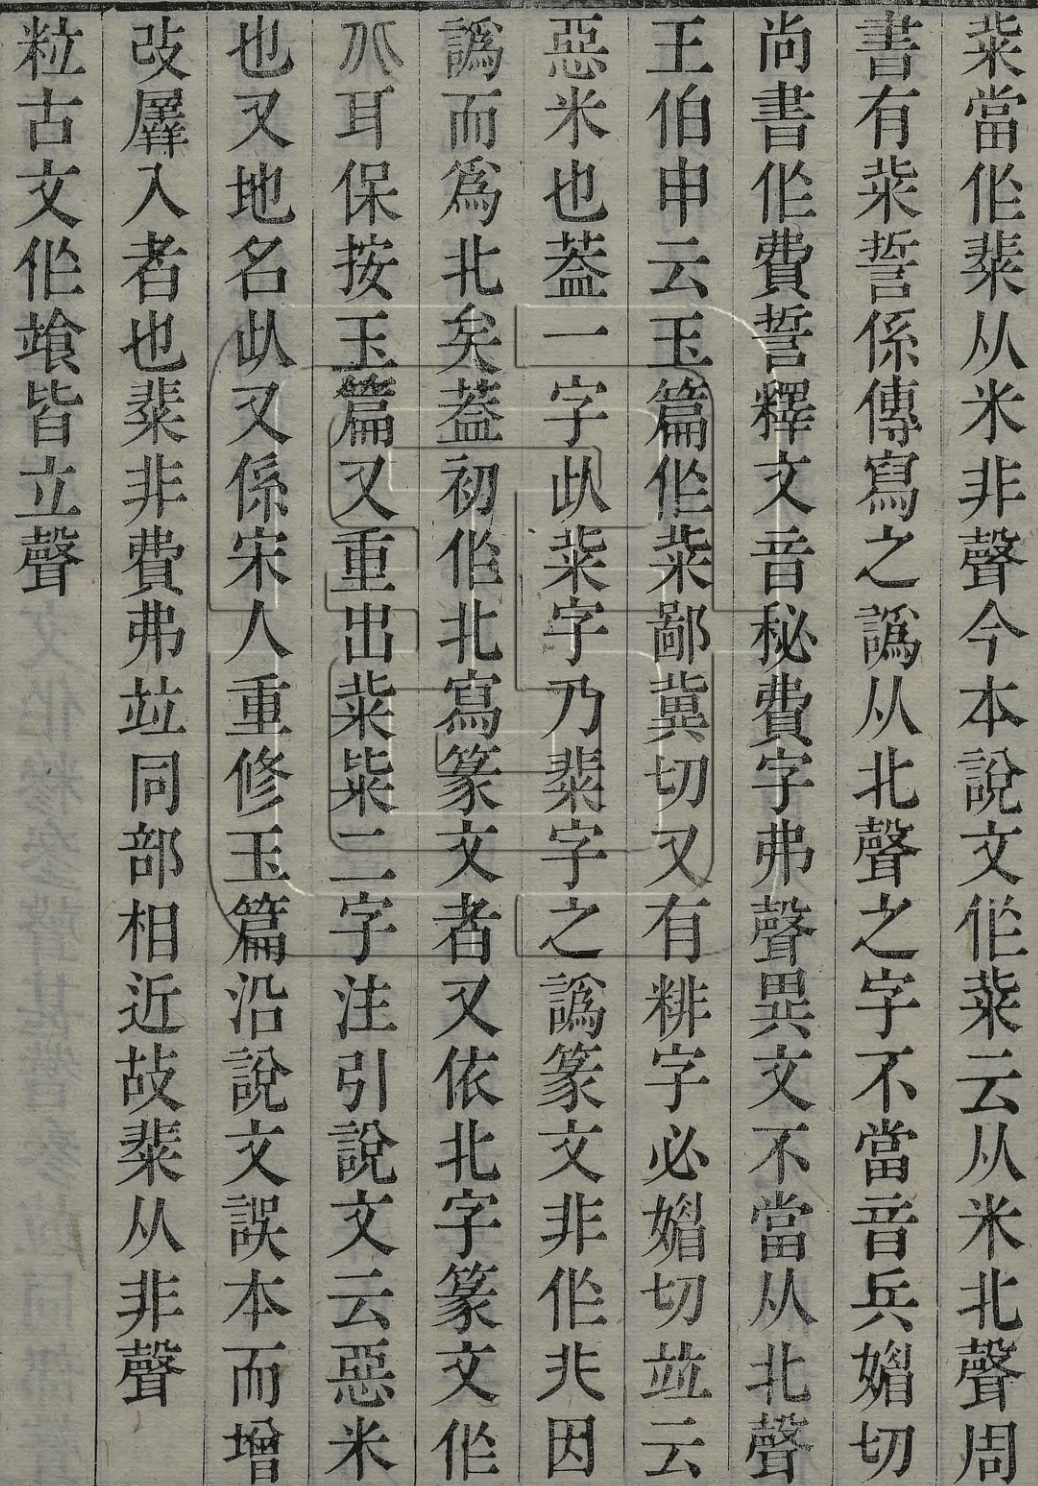 粊當作从米非聲今本說文作粊云从米北聲周
書有粊誓係傳寫之譌从北聲之字不當音兵媚切
尚書作費誓釋文音秘費字弗聲異文不當从北聲
王伯申云玉篇作粊鄙冀切又有字必媚切竝云
惡米也葢一字此粊字乃字之譌篆文非作因
譌而爲北矣葢初作北寫篆文者又依北字篆文作
耳保按玉篇又重出粊二字注引說文云惡米
也又地名此又係宋人重修玉篇沿說文誤本而增
改羼入者也非費弗竝同部相近故从非聲
粒古文作皆立聲